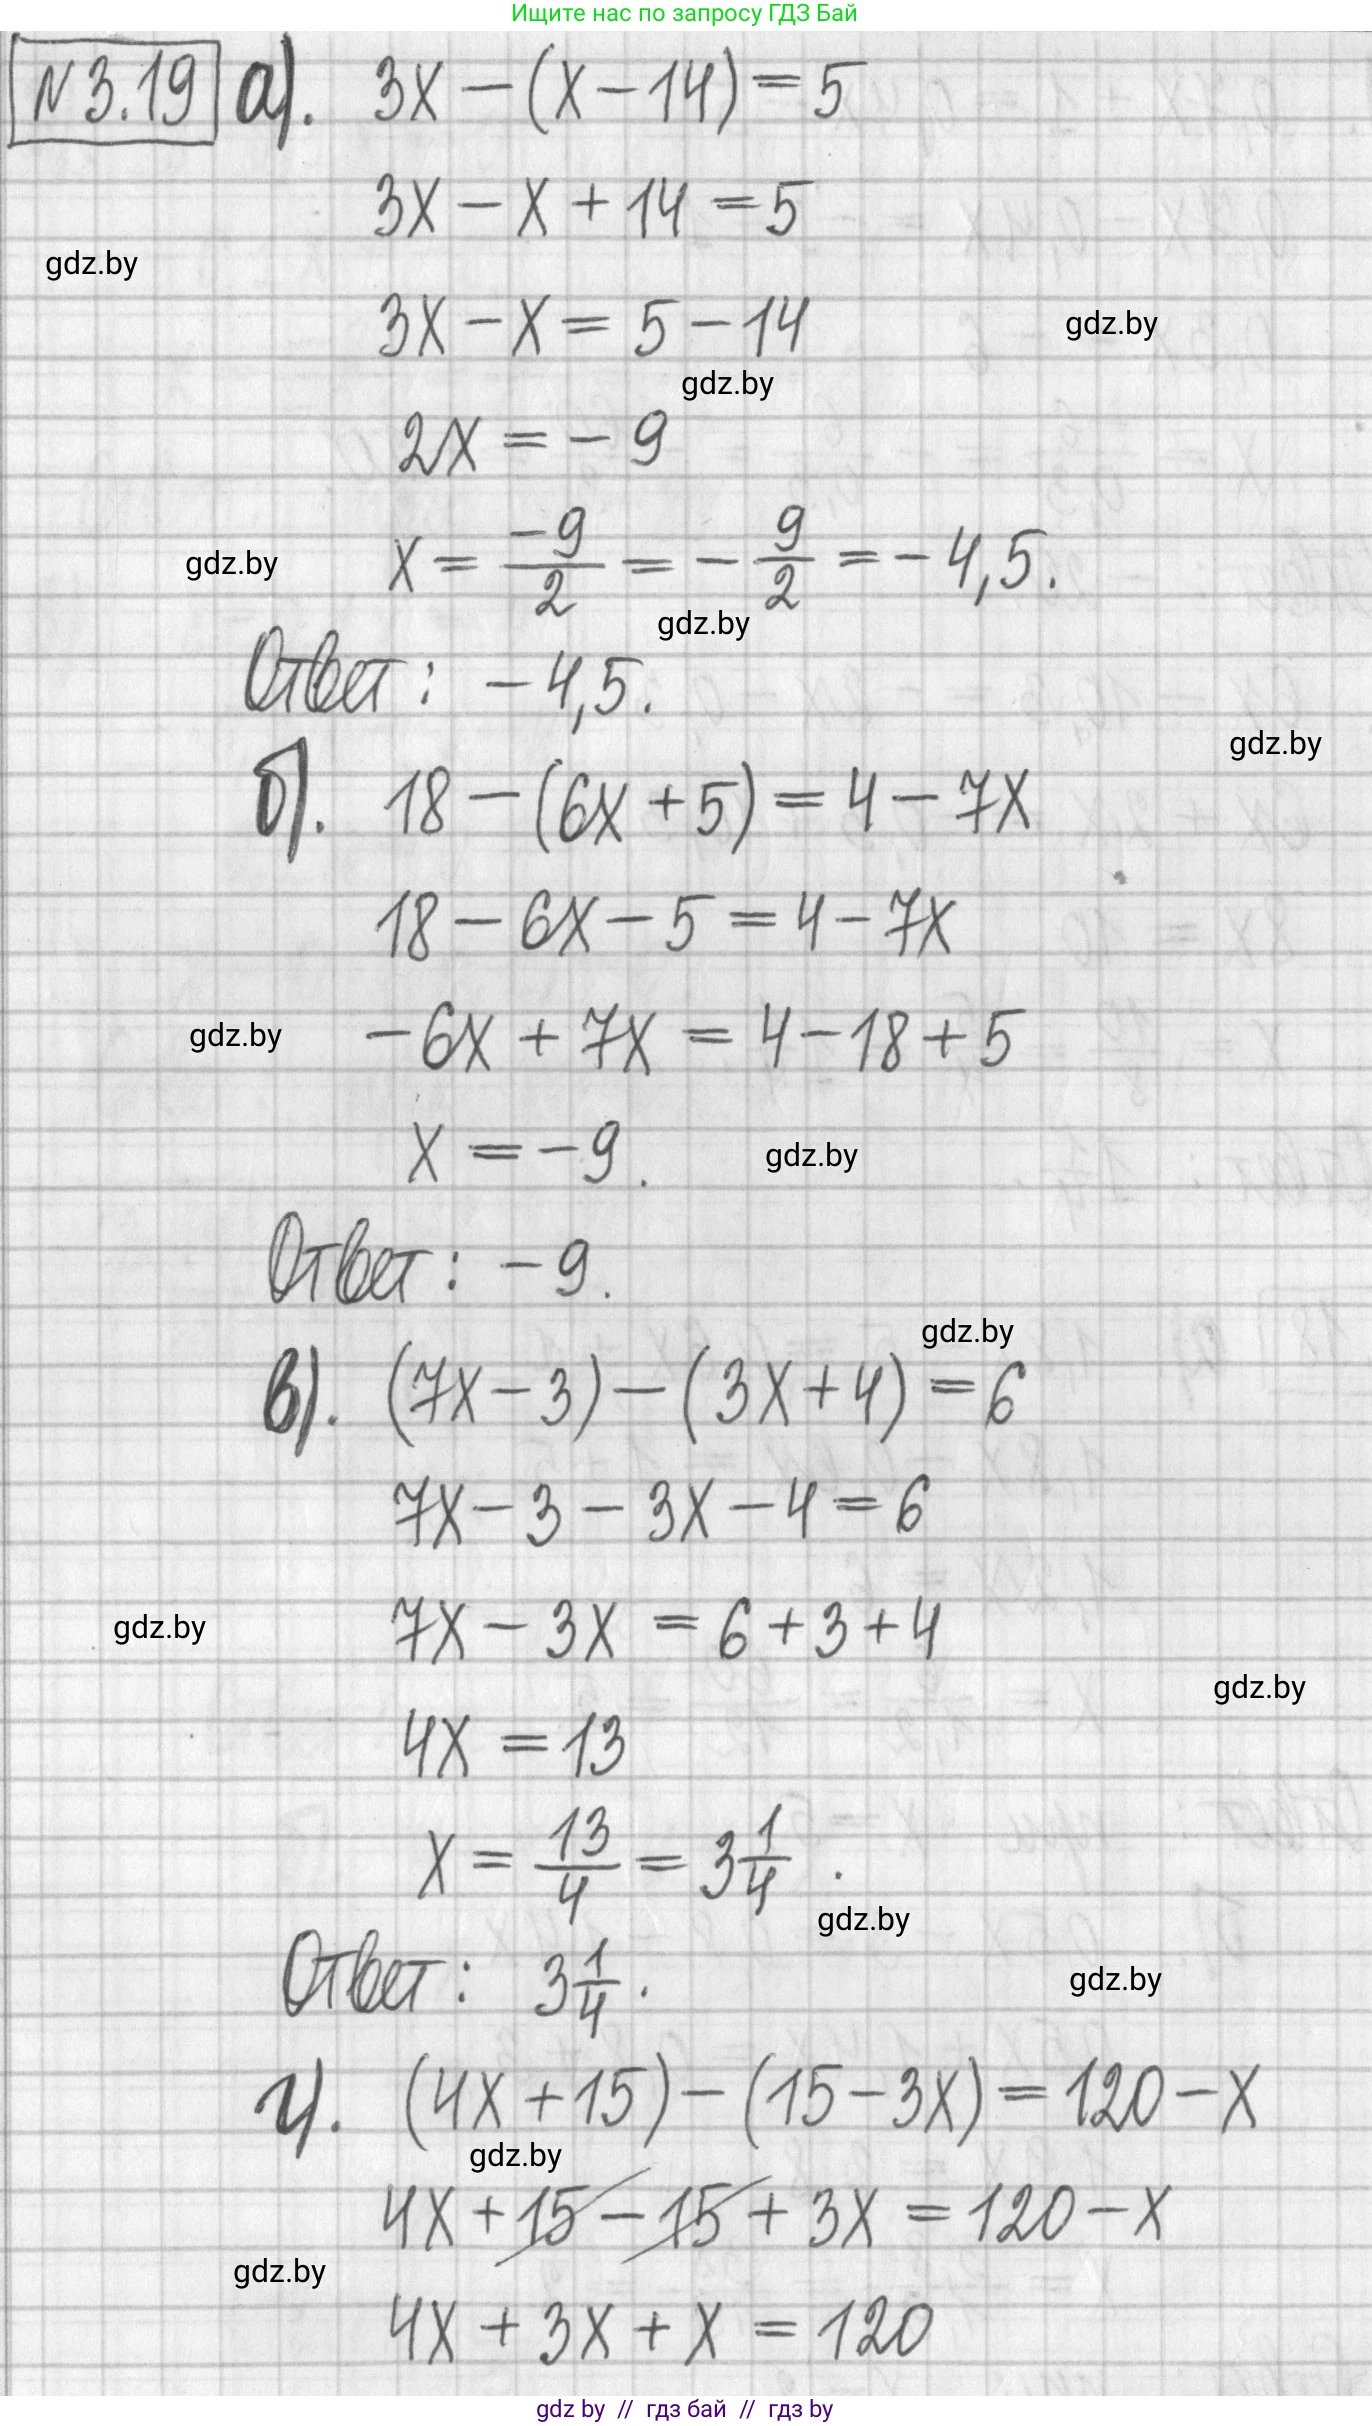 Ищите нас по запросу ГДЗ Бай
№3.19 а). 3x − (x − 14) = 5
3x − x + 14 = 5
gdz.by
3x − x = 5 − 14
gdz.by
gdz.by
2x = − 9
x = −9/2 = − 9/2 = − 4,5.
gdz.by
gdz.by
Ответ: − 4,5.
gdz.by
б). 18 − (6x + 5) = 4 − 7x
18 − 6x − 5 = 4 − 7x
−6x + 7x = 4 − 18 + 5
gdz.by
x = −9.
gdz.by
Ответ: − 9.
gdz.by
в). (7x − 3) − (3x + 4) = 6
7x − 3 − 3x − 4 = 6
7x − 3x = 6 + 3 + 4
gdz.by
gdz.by
4x = 13
x = 13/4 = 3 1/4.
gdz.by
Ответ: 3 1/4.
gdz.by
г). (4x + 15) − (15 − 3x) = 120 − x
gdz.by
4x + 15 − 15 + 3x = 120 − x
gdz.by
4x + 3x + x = 120
gdz by // гдз бай // гдз by